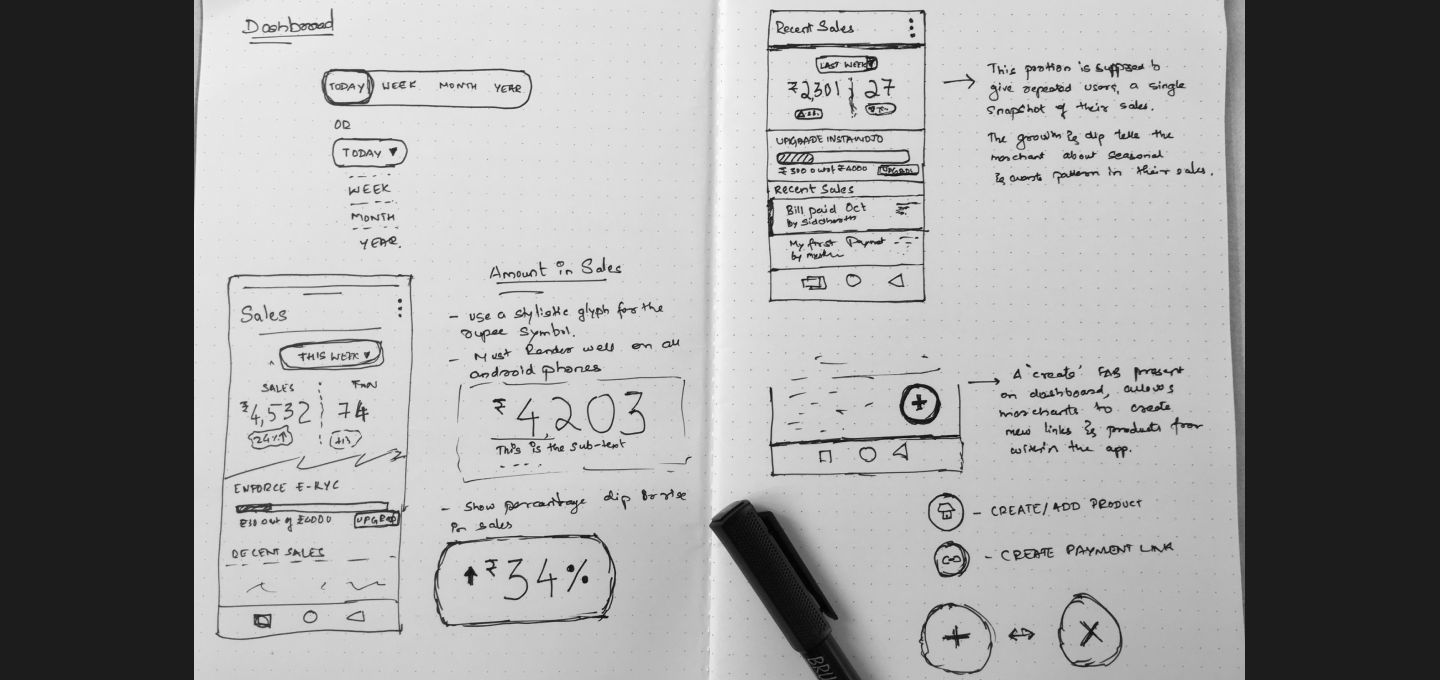 Dashboard
TODAY WEEK MONTH YEAR
OR
TODAY ▼
WEEK
MONTH
YEAR.
Sales
THIS WEEK ▼
SALES TXN
₹4,532 74
24%↑ +13
ENFORCE E-KYC
₹30 out of ₹6000 UPGRAD
RECENT SALES
Amount in Sales
- use a stylistic glyph for the
rupee symbol.
- Must Render well on all
android phones
₹4,203
This is the sub-text
- Show percentage dip or rise
in sales
↑₹34%
Recent Sales
LAST WEEK▼
₹2,301 27
UPGRADE INSTAMOJO
₹300 out of ₹4000 UPGRADE
Recent Sales
Bill paid Oct
by Siddharth
My first Payment
by
This portion is supposed to
give repeated users, a single
snapshot of their sales.
The growth & dip tells the
merchant about seasonal
& pattern in their sales.
A 'create' FAB present
on dashboard, allows
merchants to create
new links & products from
within the app.
+
- CREATE/ADD PRODUCT
- CREATE PAYMENT LINK
+ ↔ X
BRU